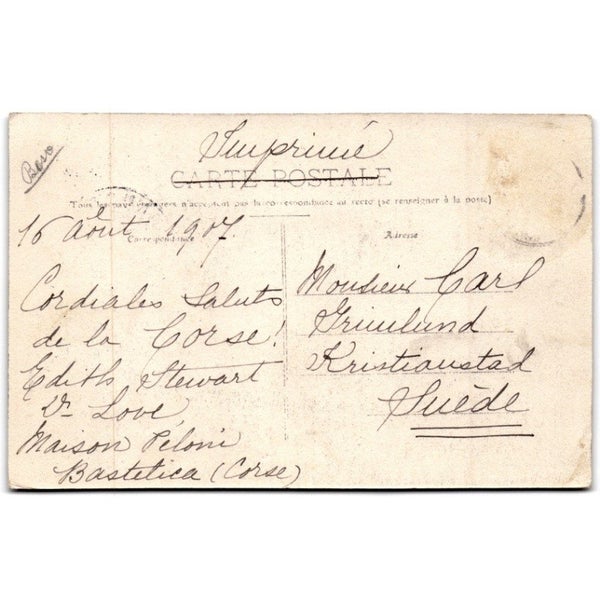 Imprimé
CARTE POSTALE
Tous les pays étrangers n'acceptent pas la correspondance au recto (se renseigner à la poste)
Correspondance
Adresse
16 août 1907.
Cordiales Saluts
de la Corse!
Edith Stewart
Love
Maison Péloni
Bastelica (Corse)
Monsieur Carl
Grimlund
Kristianstad
Suède